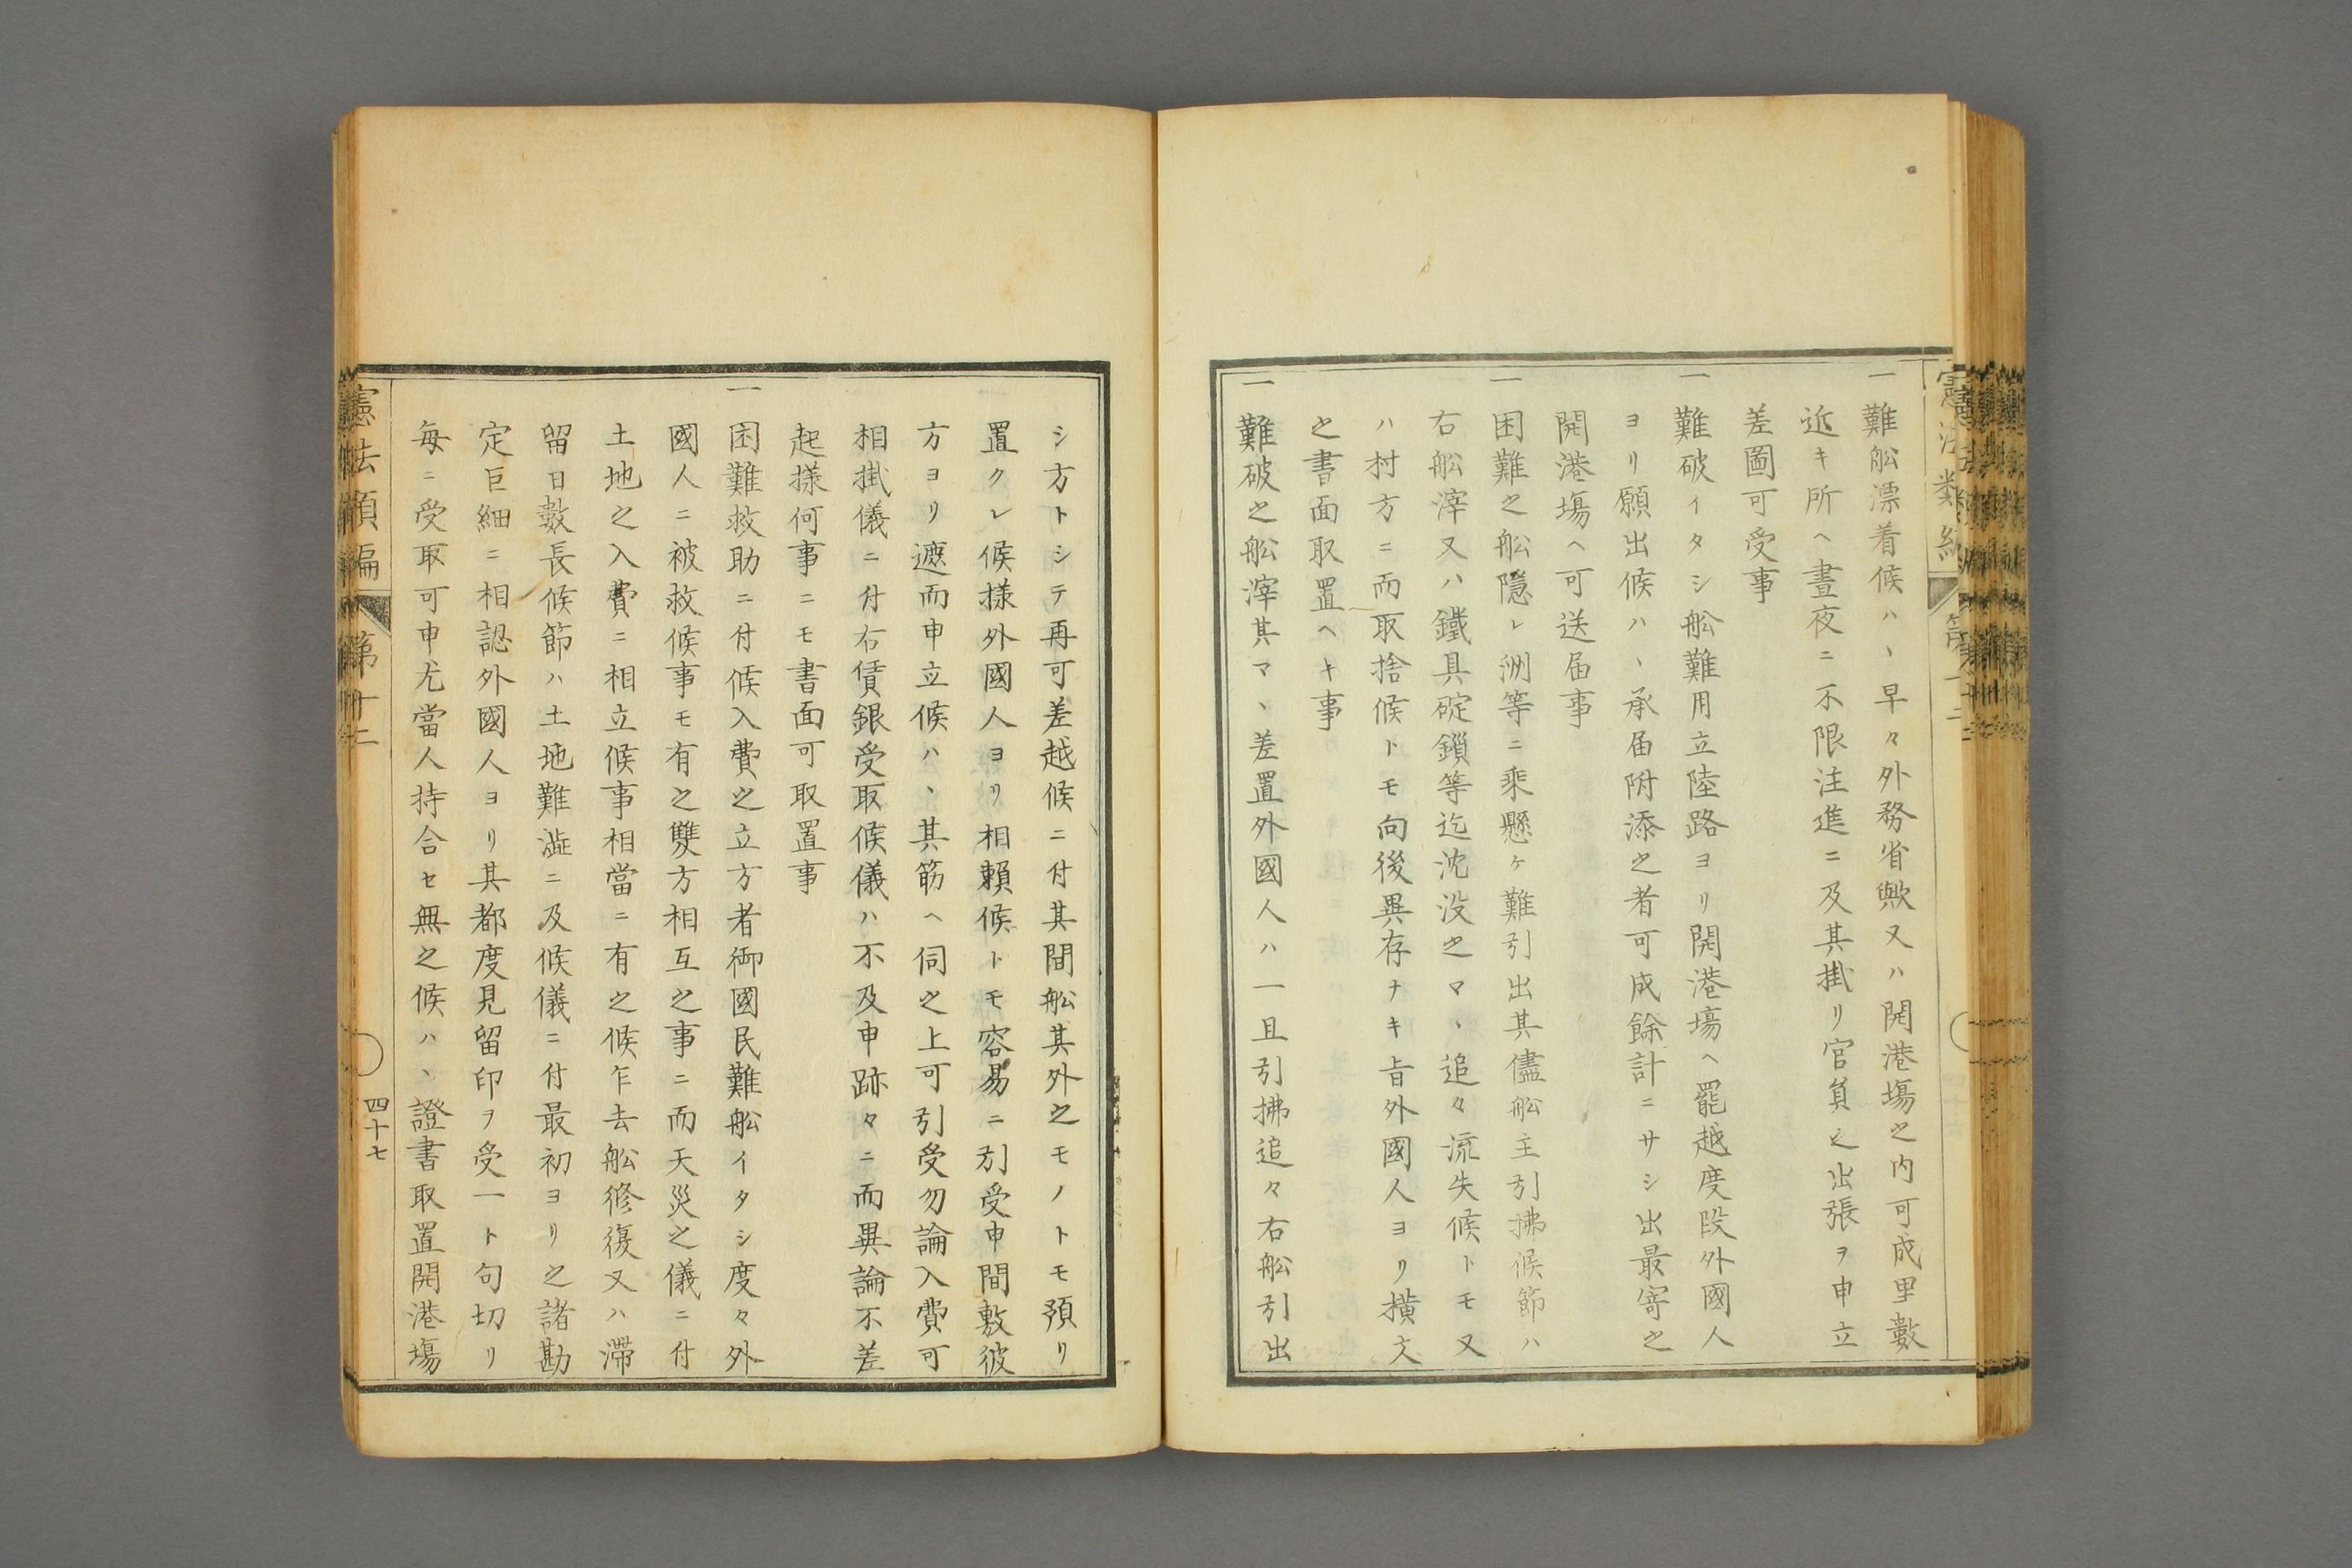 一難舩漂着候ハヽ早々外務省歟又ハ開港塲之内可成里數
近キ所ヘ晝夜ニ不限注進ニ及其掛リ官員之出張ヲ申立
差圖可受事
一難破イタシ舩難用立陸路ヨリ開港塲ヘ罷越度段外國人
ヨリ願出候ハヽ承届附添之者可成餘計ニサシ出最寄之
開港塲ヘ可送届事
一困難之舩隱レ洲等ニ乘懸ケ難引出其儘舩主引拂候節ハ
右舩滓又ハ鐵具碇鎖等迄沈没之マヽ追々流失候トモ又
ハ村方ニ而取捨候トモ向後異存ナキ旨外國人ヨリ横文
之書面取置ヘキ事
一難破之舩滓其マヽ差置外國人ハ一且引拂追々右舩引出
シ方トシテ再可差越候ニ付其間舩其外之モノトモ預リ
置クレ候様外國人ヨリ相頼候トモ容易ニ引受申間敷彼
方ヨリ遮而申立候ハヽ其筋ヘ伺之上可引受勿論入費可
相掛儀ニ付右賃銀受取候儀ハ不及申跡々ニ而異論不差
起様何事ニモ書面可取置事
一困難救助ニ付候入費之立方者御國民難舩イタシ度々外
國人ニ被救候事モ有之雙方相互之事ニ而天災之儀ニ付
土地之入費ニ相立候事相當ニ有之候乍去舩修復又ハ滯
留日數長候節ハ土地難澁ニ及候儀ニ付最初ヨリ之諸勘
定巨細ニ相認外國人ヨリ其都度見留印ヲ受一ト句切リ
毎ニ受取可申尤當人持合セ無之候ハヽ證書取置開港塲
憲法類編 第十二 四十七